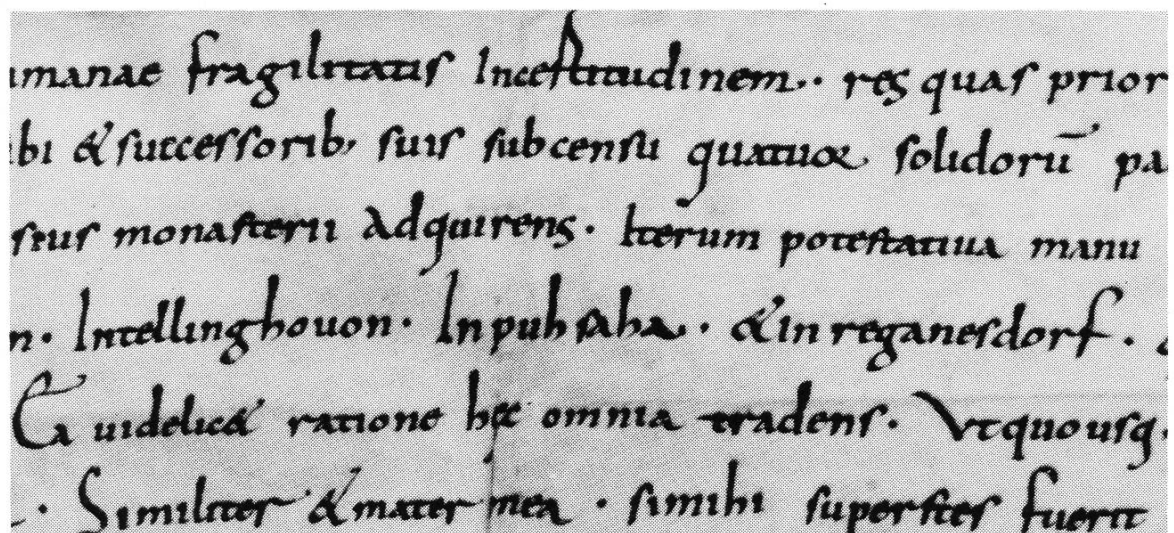 umanae fragilitatis Incestitudinem·· res quas prior
ibi &successorib, suis subcensu quatuor solidorū pa
seus monasterii Adquirens· Iterum potestatiua manu
n· Intellinghouon· In puhsaha·· &in reganesdorf·
Ea uidelic& ratione hęc omnia tradens· Vtquousq·
· Similiter &mater mea · simihi superstes fuerit